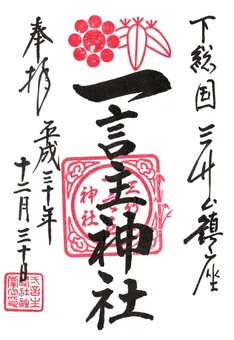 下総国三竹山鎮座
一言主神社
奉拝
平成三十年
十二月三十日